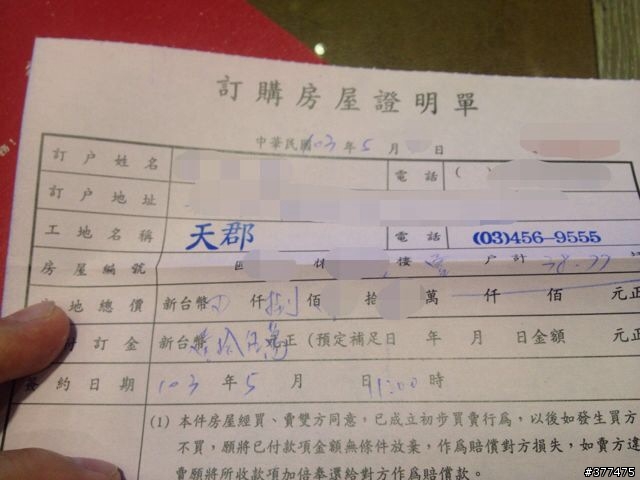 訂購房屋證明單
中華民國103年5月 日
訂戶姓名 電話 ( )
訂戶地址
工地名稱 天郡 電話 (03)456-9555
房屋編號 區 樓 戶計 38.77
地總價 新台幣 仟捌佰 拾 萬 仟 佰 元正
訂金 新台幣壹拾伍萬元正(預定補足日 年 月 日金額 元正
約日期 103年5月 日 11:00時
(1) 本件房屋經買、賣雙方同意,已成立初步買賣行為,以後如發生買方
不買,願將已付款項金額無條件放棄,作為賠償對方損失,如賣方違
賣願將所收款項加倍奉還給對方作為賠償款。
#377475